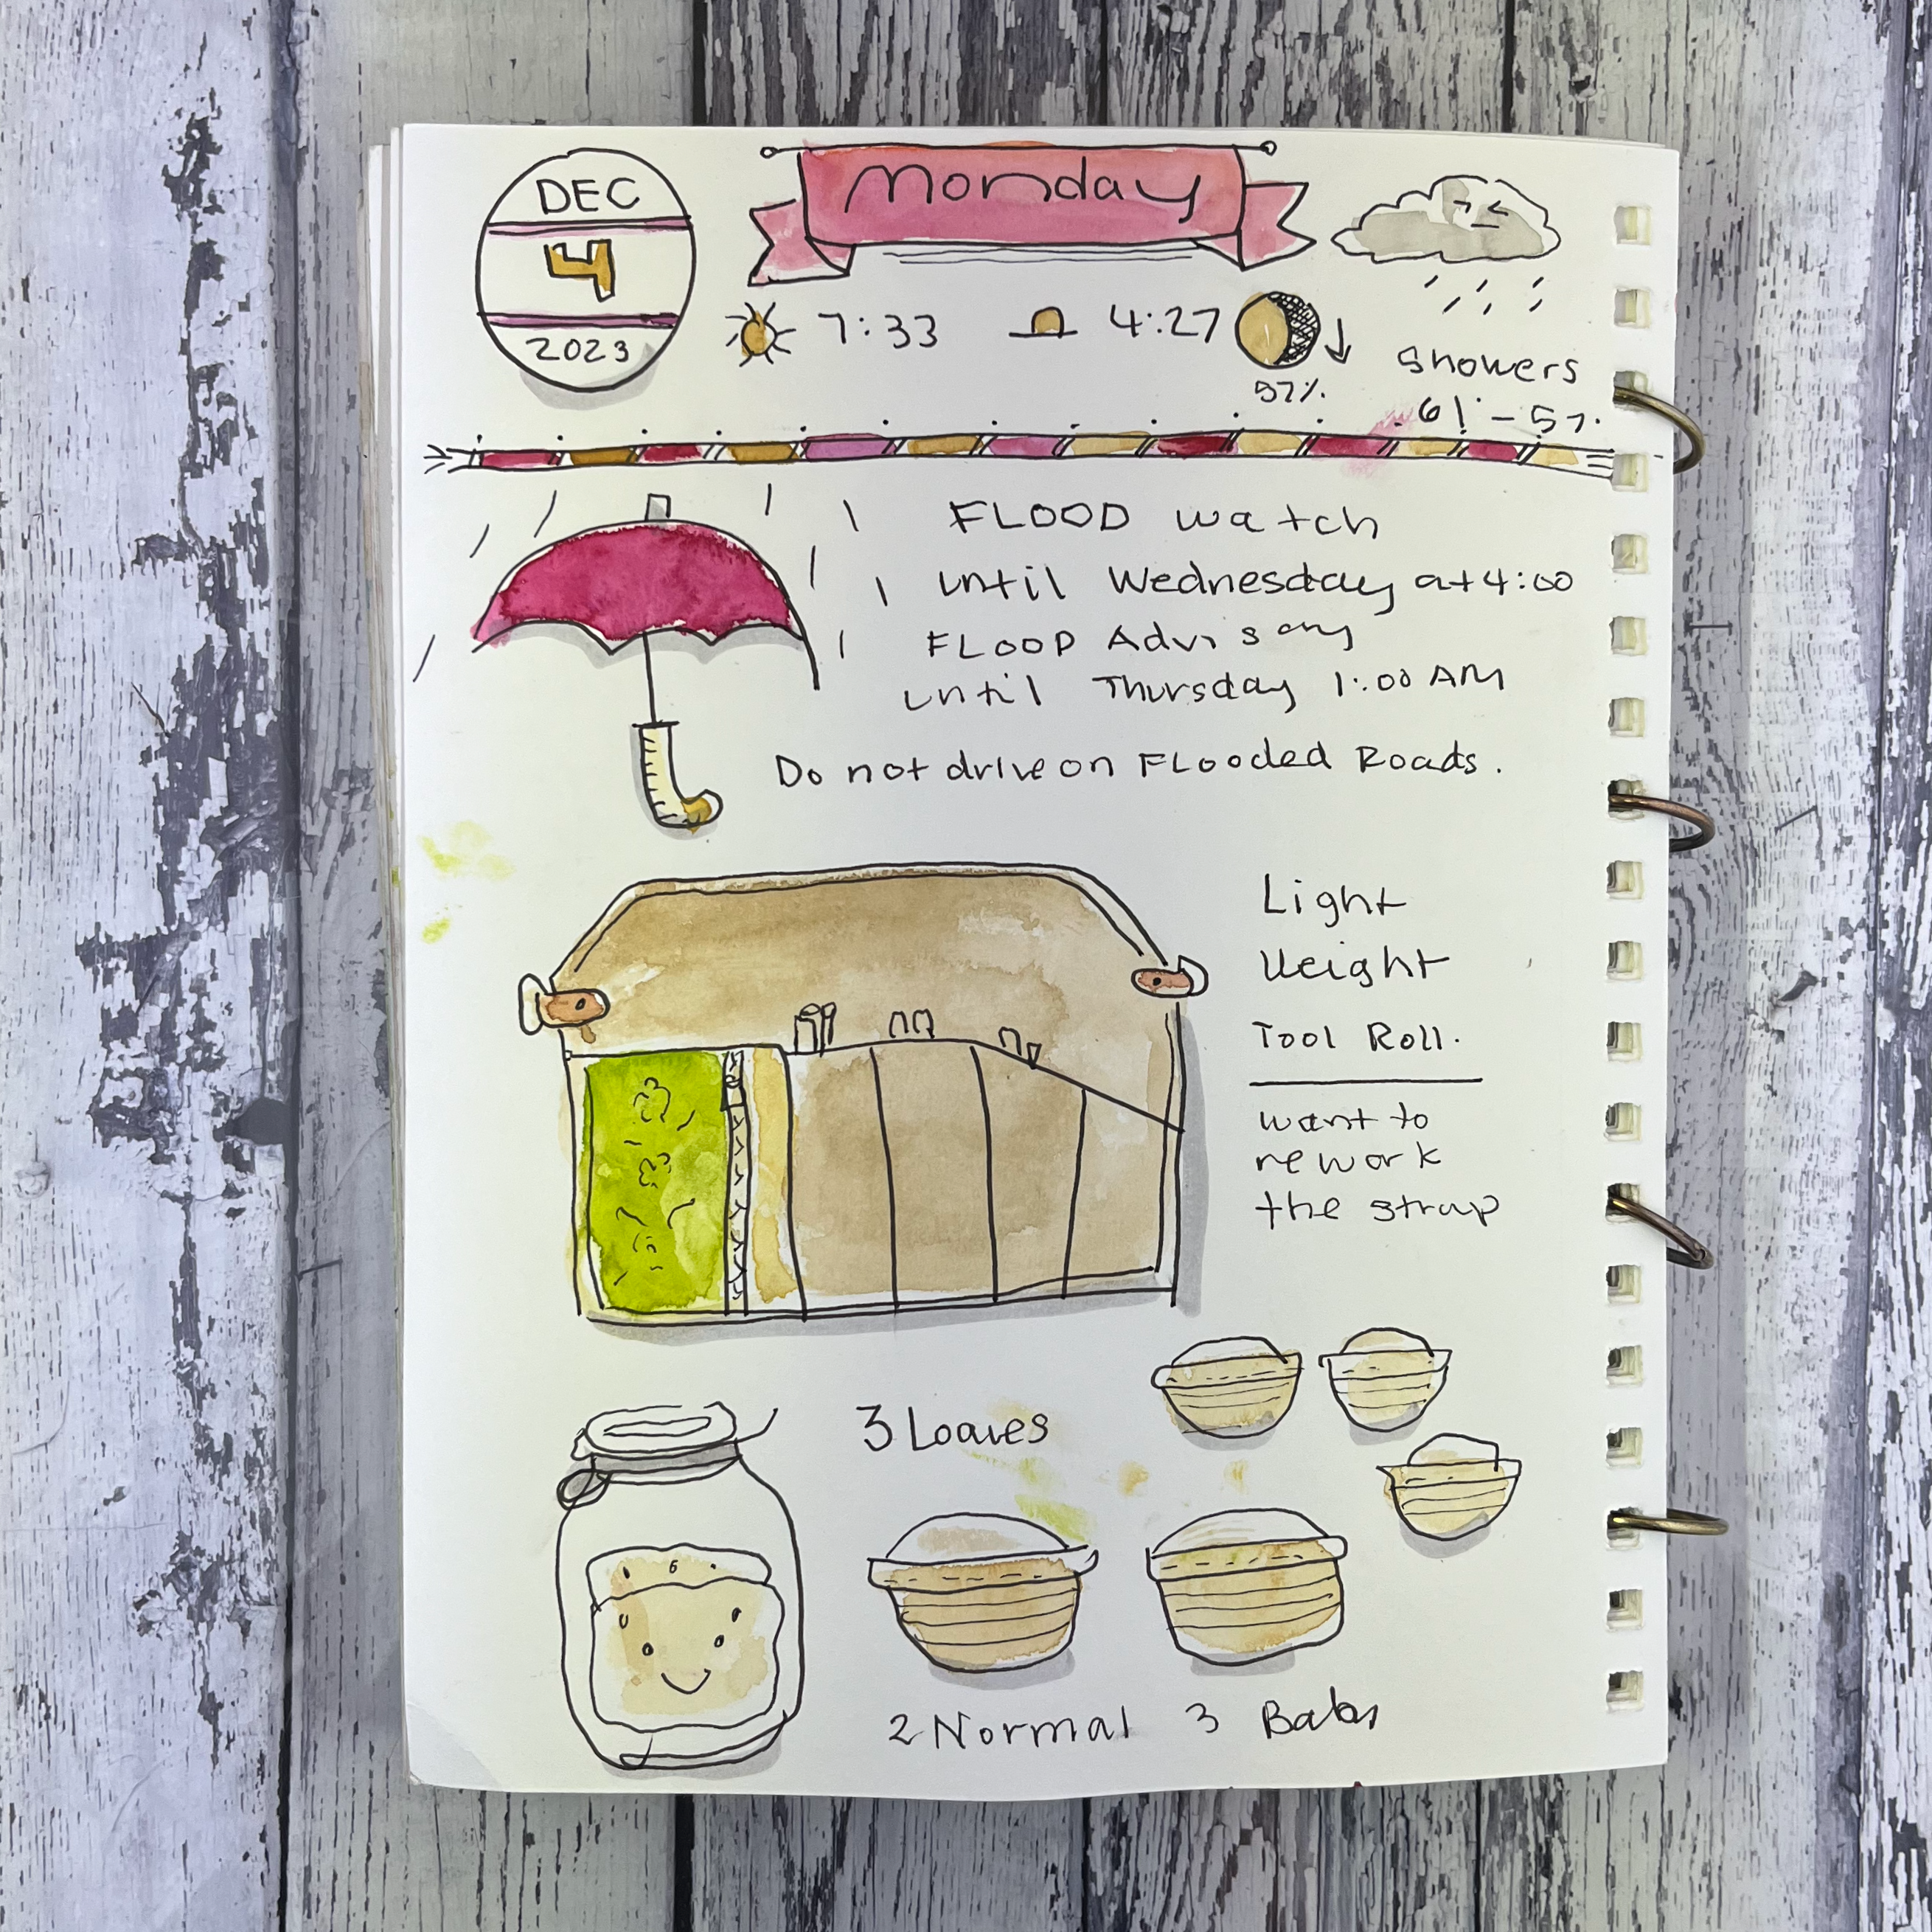 DEC
4
2023
Monday
7:33
4:27
57%.
showers
61° - 57°
FLOOD watch
until Wednesday at 4:00
FLOOD Advisory
until Thursday 1:00 AM
Do not drive on FLooded Roads.
Light
Weight
Tool Roll.
want to
rework
the strap
3 Loaves
2 Normal 3 Baby